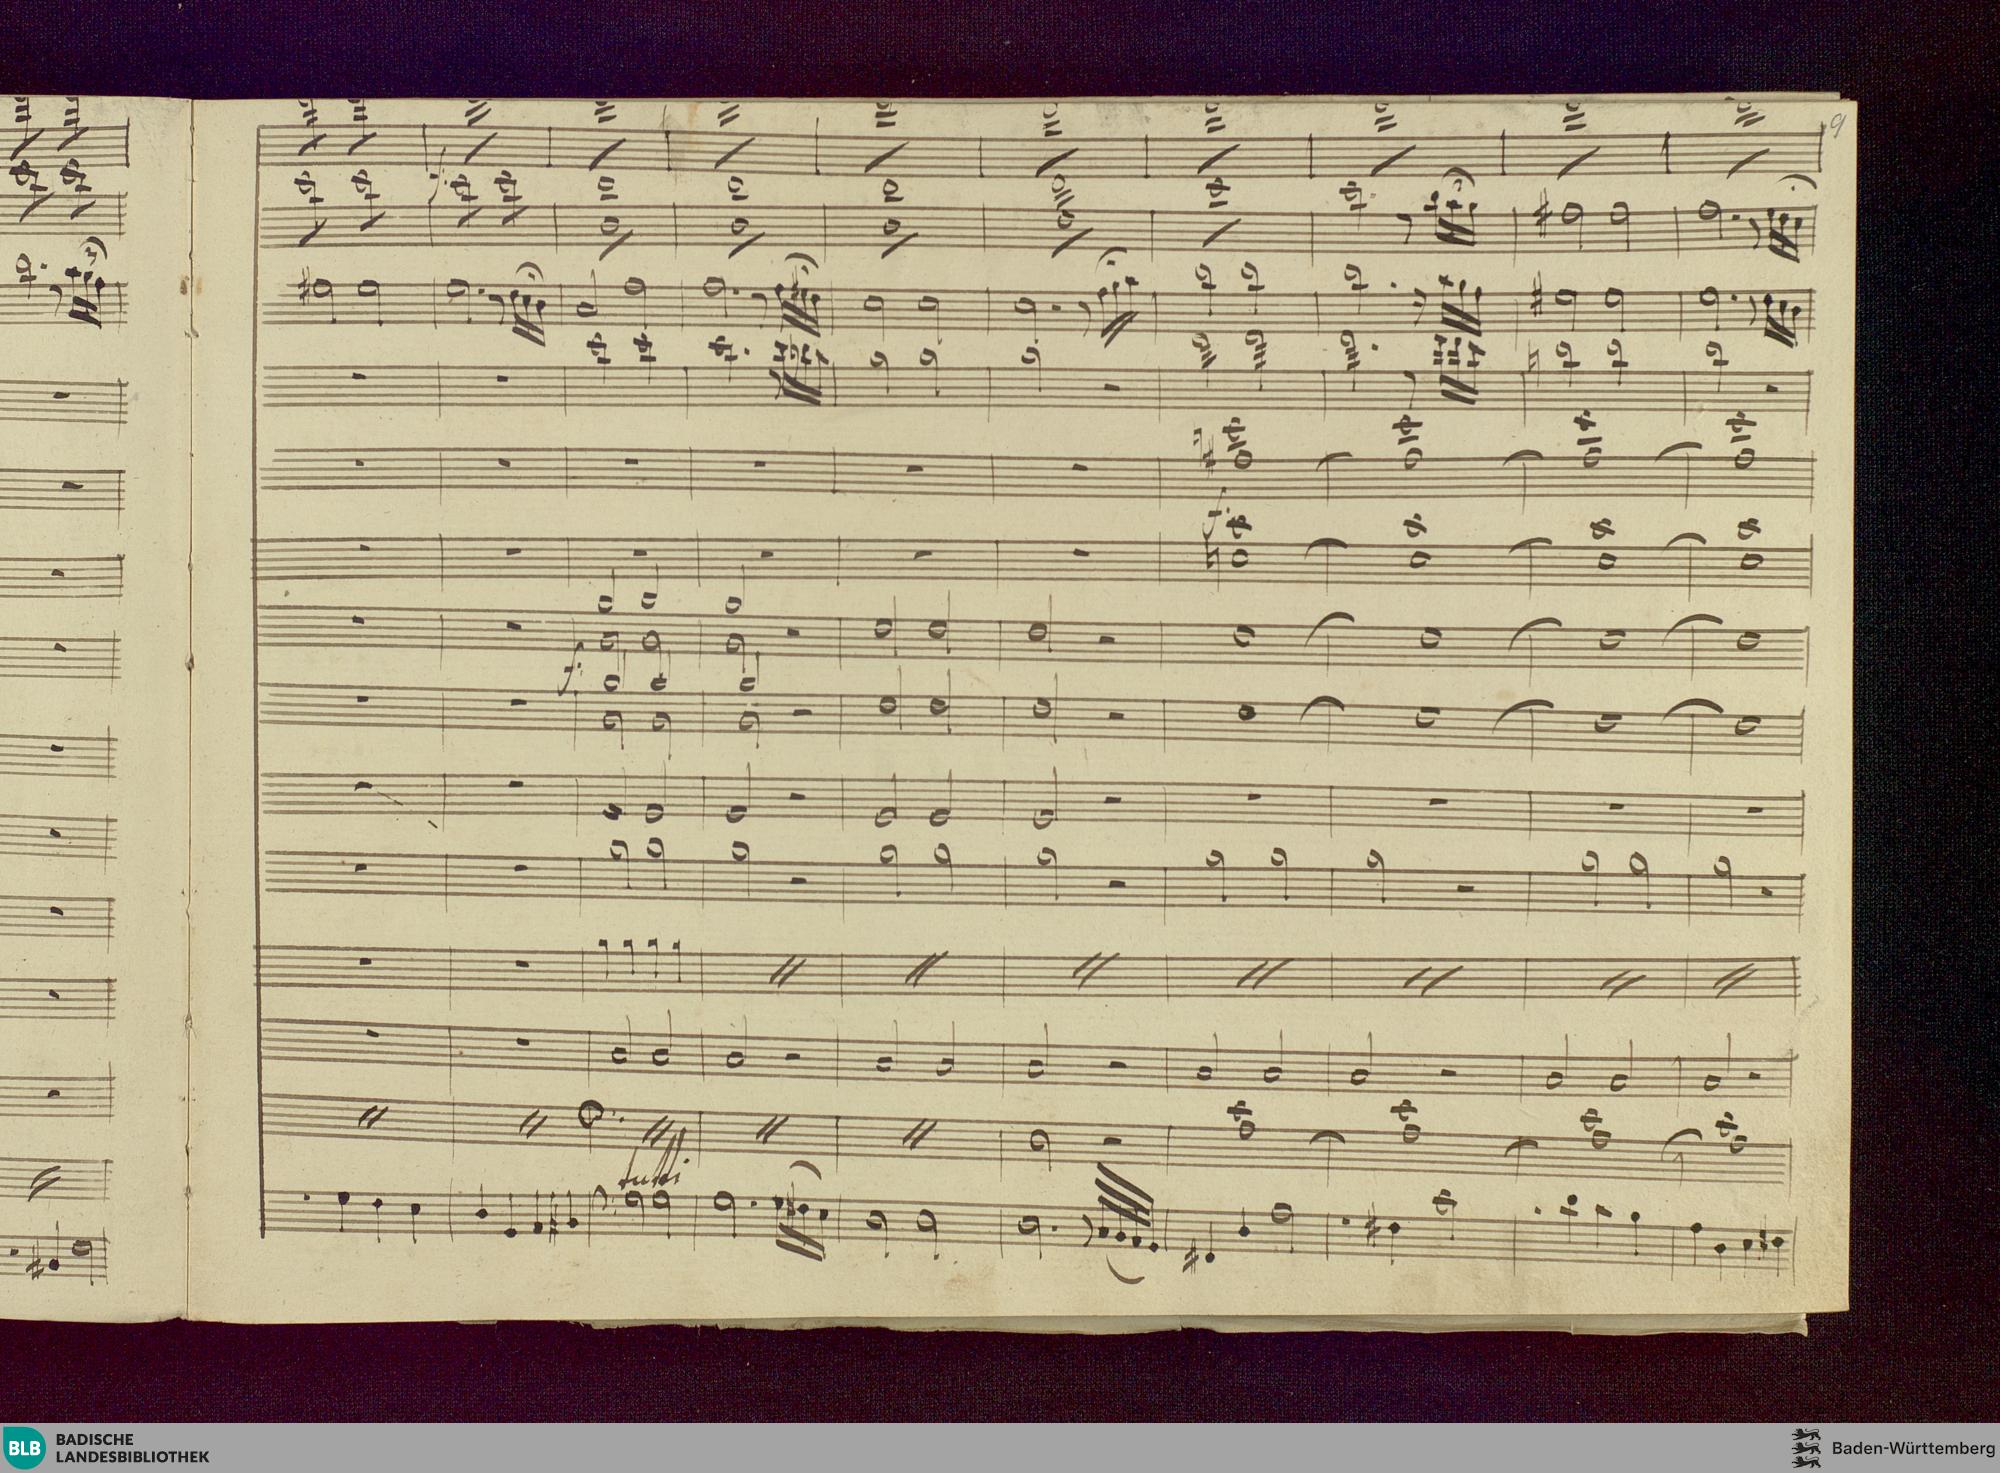 9
f:
f:
f:
tutti
BLB BADISCHE
LANDESBIBLIOTHEK
Baden-Württemberg